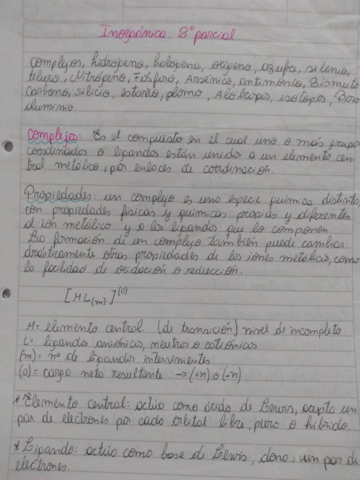 Inorgánica 2º parcial
Complejos, hidrógeno, halógenos, oxígeno, azufre, selenio,
teluro, Nitrógeno, Fósforo, Arsénico, antimonio, Bismuto
Carbono, silicio, estaño, plomo, Alótropos, isótopos, Boro
aluminio
Complejos: Es el compuesto en el cual uno o más grupos
coordinados o ligandos están unidos a un elemento cen
tral metálico, por enlaces de coordinación.
Propiedades: un complejo es una especie química distinta
con propiedades físicas y químicas propias y diferentes
al ión metálico y a los ligandos que lo componen.
La formación de un complejo también puede cambiar
drásticamente otras propiedades de los iones metálicos, como
la facilidad de oxidación o reducción.
[ML(m)](o)
M = elemento central (de transición) nivel d incompleto
L = ligandos aniónicos, neutros o catiónicos
(m) = nº de ligandos intervinientes
(o) = carga neta resultante → (+n) o (-n)
* Elemento central: actúa como ácido de Lewis, acepta un
par de electrones por cada orbital libre, puro o híbrido.
* Ligando: actúa como base de Lewis, dona un par de
electrones.